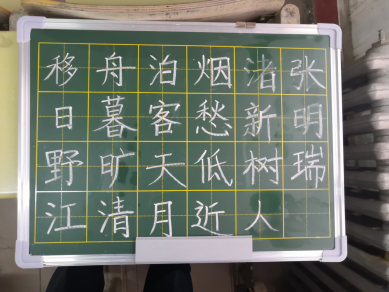 移舟泊烟渚张
日暮客愁新明
野旷天低树瑞
江清月近人